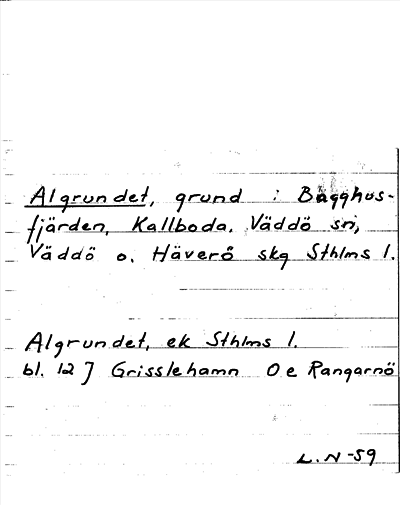 Algrundet, grund i Bagghus-
fjärden, Kallboda, Väddö sn,
Väddö o. Häverö skg Sthlms l.
Algrundet, ek Sthlms l.
bl. 12 J Grisslehamn O e Rangarnö
L.N-59